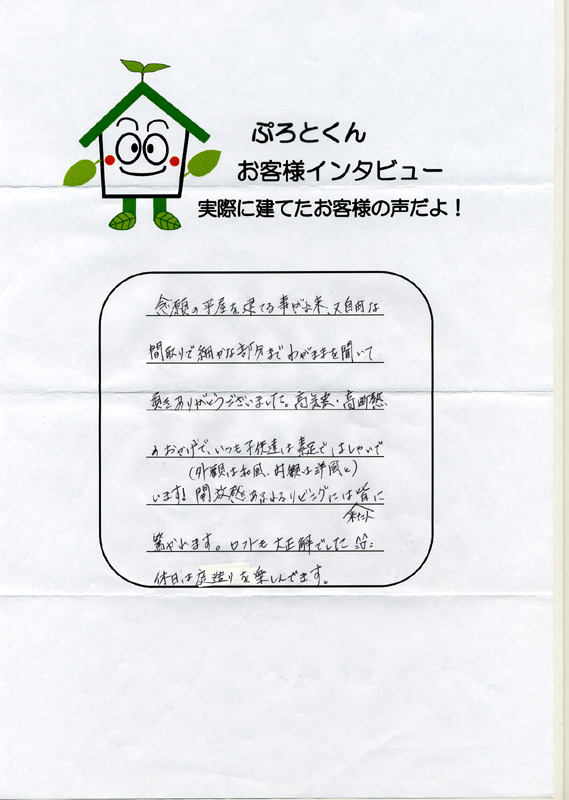 ぷろとくん
お客様インタビュー
実際に建てたお客様の声だよ！
念願の平屋を建てる事が出来、又自由な
間取りで細かな部分までわがままを聞いて
ありがとうございました。高気密・高断熱
のおかげで、いつも子供達は素足ではしゃいで
(外観は和風、内観は洋風と)
います！開放感あふれるリビングには皆に
来た人
驚かれます。ロフトも大正解でした
休日は庭造りを楽しんでます。